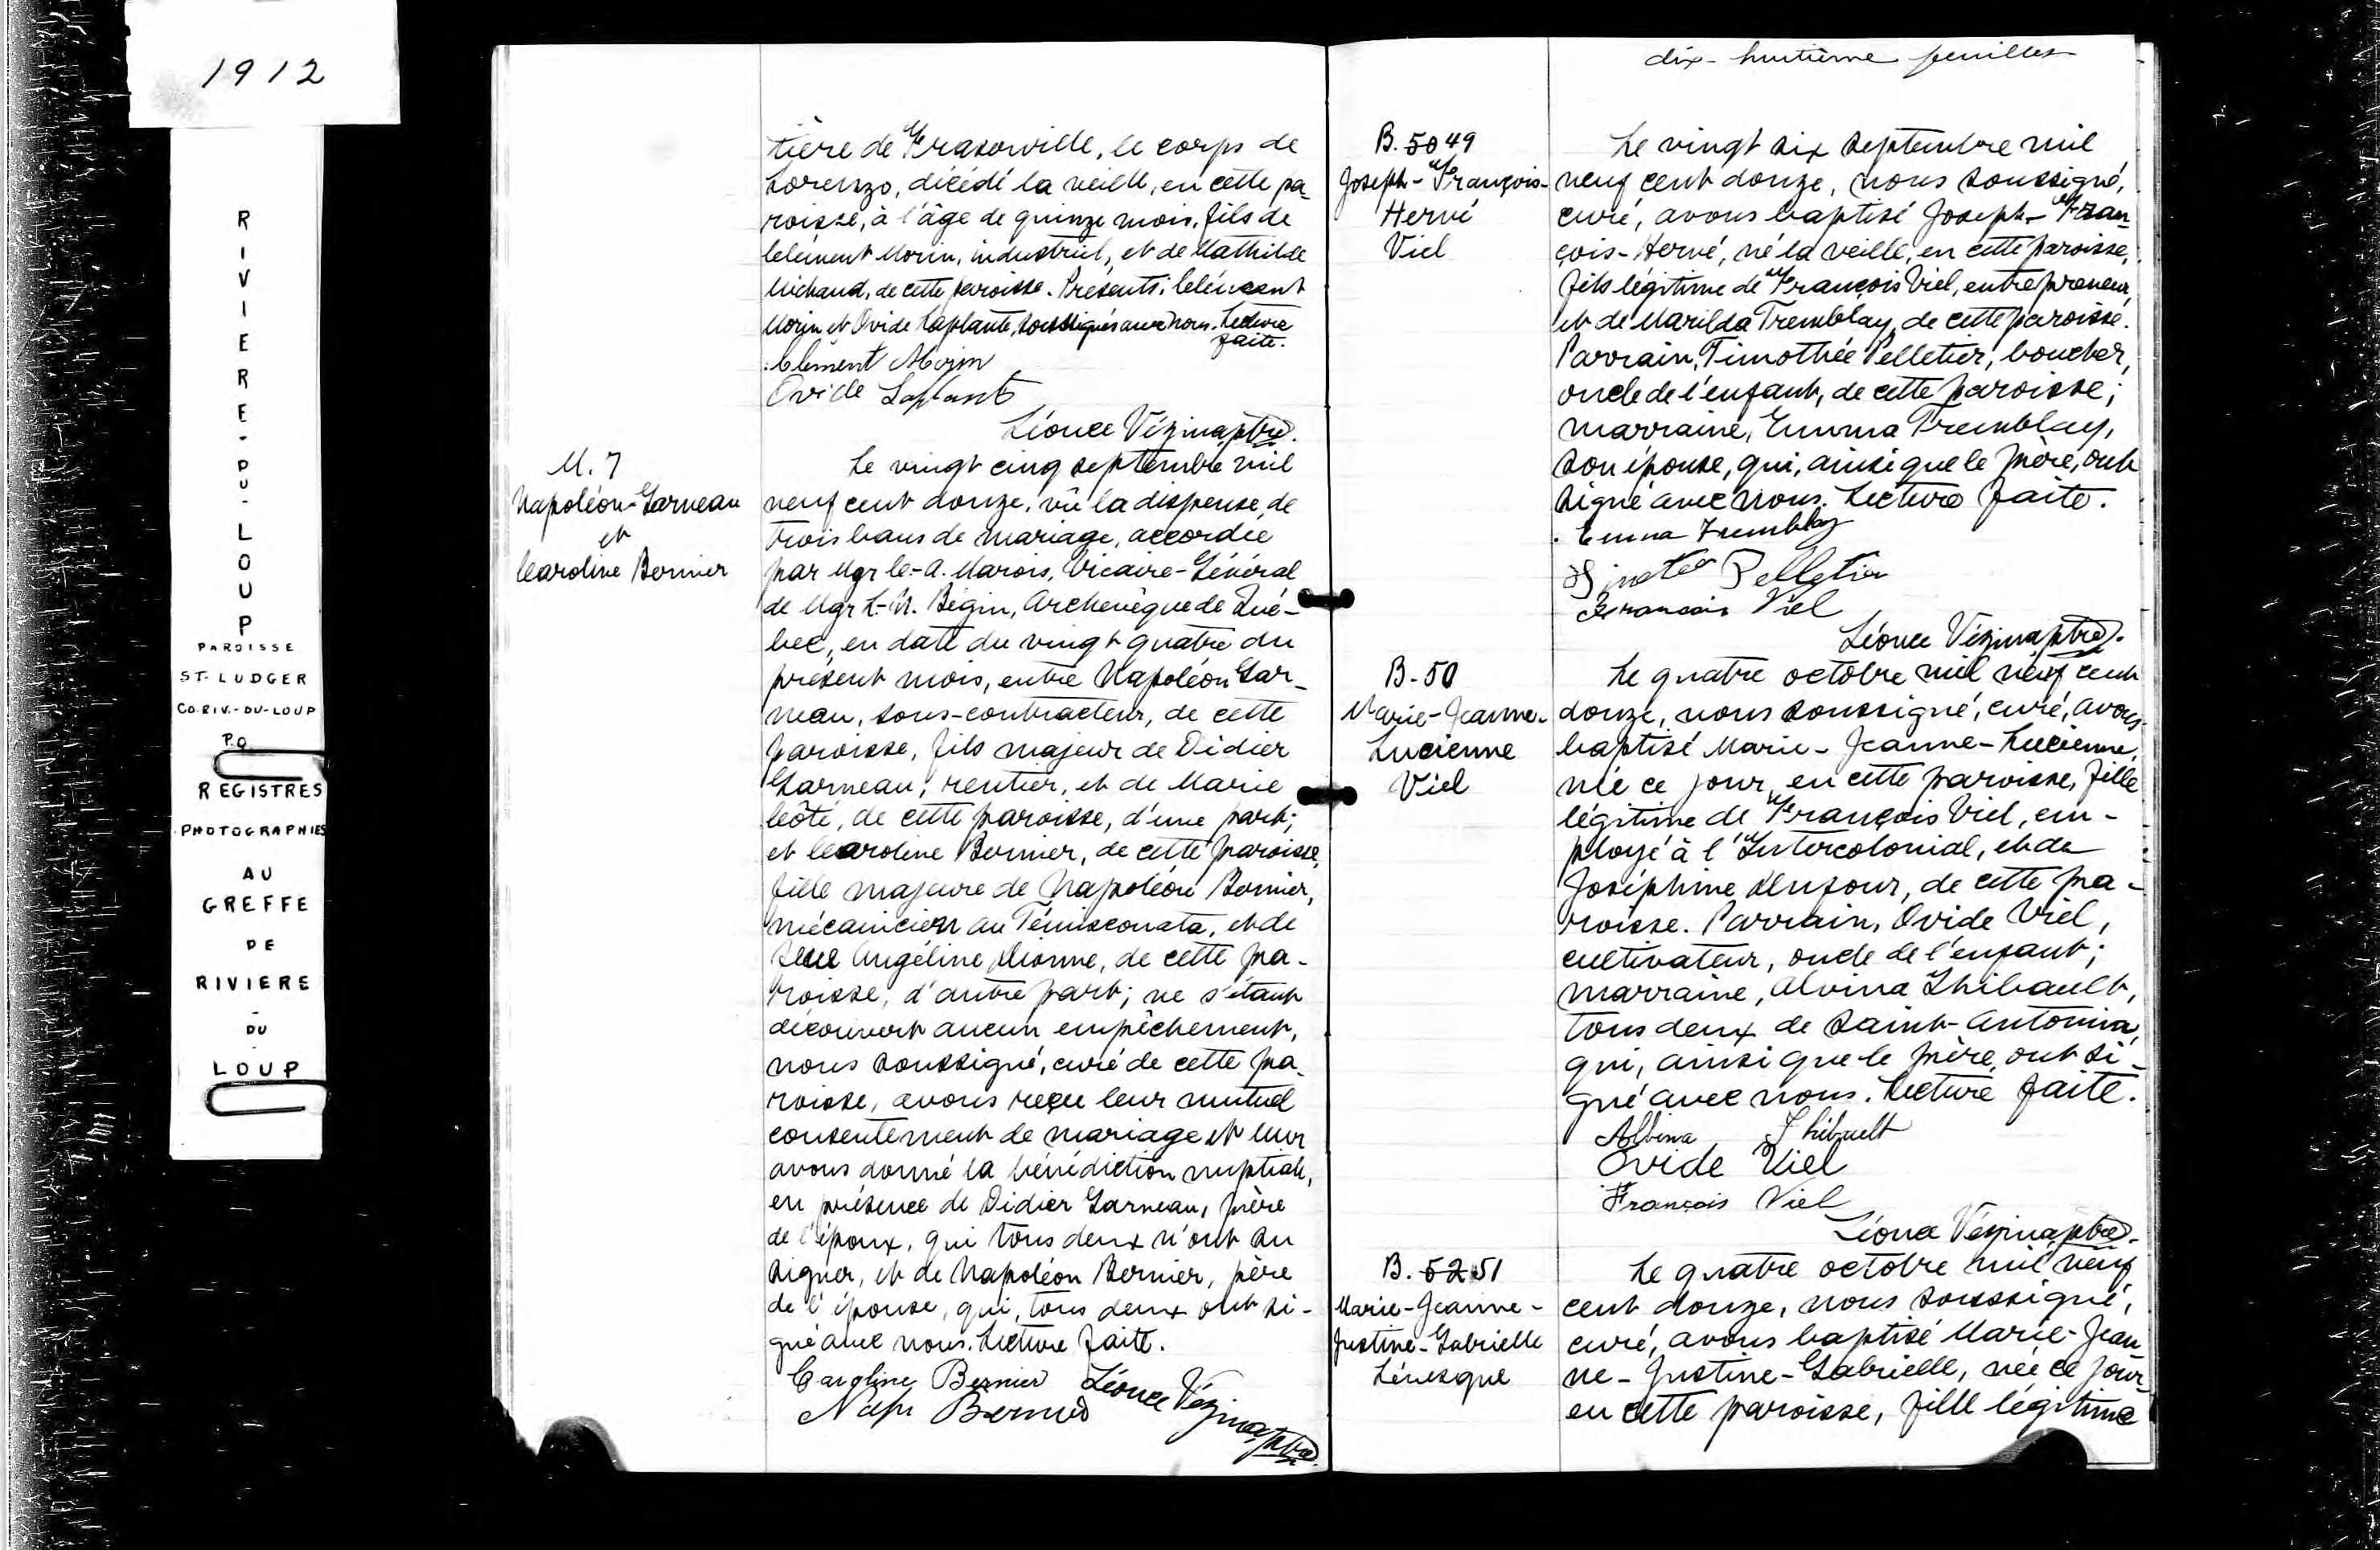 1912
RIVIERE-DU-LOUP
PAROISSE
ST-LUDGER
CO.RIV.-DU-LOUP
P.Q.
REGISTRES
PHOTOGRAPHIES
AU
GREFFE
DE
RIVIERE
-
DU
-
LOUP
tière de Fraserville, le corps de
Lorenzo, décédé la veille, en cette pa-
roisse, à l'âge de quinze mois, fils de
Clément Morin, industriel, et de Mathilde
Michaud, de cette paroisse. Présents: Clément
Morin et Ovide Laplante, soussignés avec nous. Lecture
faite.
Clément Morin
Ovide Laplante
Léonce Vézina, ptre.
M. 7
Napoléon Garneau
et
Caroline Bernier
Le vingt cinq septembre mil
neuf cent douze, vu la dispense de
trois bans de mariage, accordée
par Mgr C.-A. Marois, Vicaire-Général
de Mgr L.-N. Bégin, Archevêque de Qué-
bec, en date du vingt quatre du
présent mois, entre Napoléon Gar-
neau, sous-contracteur, de cette
paroisse, fils majeur de Didier
Garneau, rentier, et de Marie
Côté, de cette paroisse, d'une part;
et Caroline Bernier, de cette paroisse,
fille majeure de Napoléon Bernier,
mécanicien au Témiscouata, et de
feue Angéline Dionne, de cette pa-
roisse, d'autre part; ne s'étant
découvert aucun empêchement,
nous soussigné, curé de cette pa-
roisse, avons reçu leur mutuel
consentement de mariage et leur
avons donné la bénédiction nuptiale,
en présence de Didier Garneau, père
de l'époux, qui tous deux n'ont su
signer, et de Napoléon Bernier, père
de l'épouse, qui, tous deux ont si-
gné avec nous. Lecture faite.
Caroline Bernier Léonce Vézina, ptre.
Nap Bernier
dix-huitième feuillet
B. 50 49
Joseph-François-
Hervé
Viel
Le vingt six septembre mil
neuf cent douze, nous soussigné,
curé, avons baptisé Joseph-Fran-
çois-Hervé, né la veille, en cette paroisse,
fils légitime de François Viel, entrepreneur,
et de Marilda Tremblay, de cette paroisse.
Parrain, Timothée Pelletier, boucher,
oncle de l'enfant, de cette paroisse;
marraine, Emma Tremblay,
son épouse, qui, ainsi que le père, ont
signé avec nous. Lecture faite.
Emma Tremblay
Pelletier
Francois Viel
Léonce Vézina, ptre.
B-50
Marie-Jeanne-
Lucienne
Viel
Le quatre octobre mil neuf cent
douze, nous soussigné, curé, avons
baptisé Marie-Jeanne-Lucienne,
née ce jour, en cette paroisse, fille
légitime de François Viel, em-
ployé à l'Intercolonial, et de
Joséphine Dufour, de cette pa-
roisse. Parrain, Ovide Viel,
cultivateur, oncle de l'enfant;
marraine, Alvina Thibault,
tous deux de Saint-Antonin,
qui, ainsi que le père, ont si-
gné avec nous. Lecture faite.
Albina Thibault
Ovide Viel
François Viel
Léonce Vézina, ptre.
B. 52 51
Marie-Jeanne-
Justine-Gabrielle
Lévesque
Le quatre octobre mil neuf
cent douze, nous soussigné,
curé, avons baptisé Marie-Jean-
ne-Justine-Gabrielle, née ce jour
en cette paroisse, fille légitime